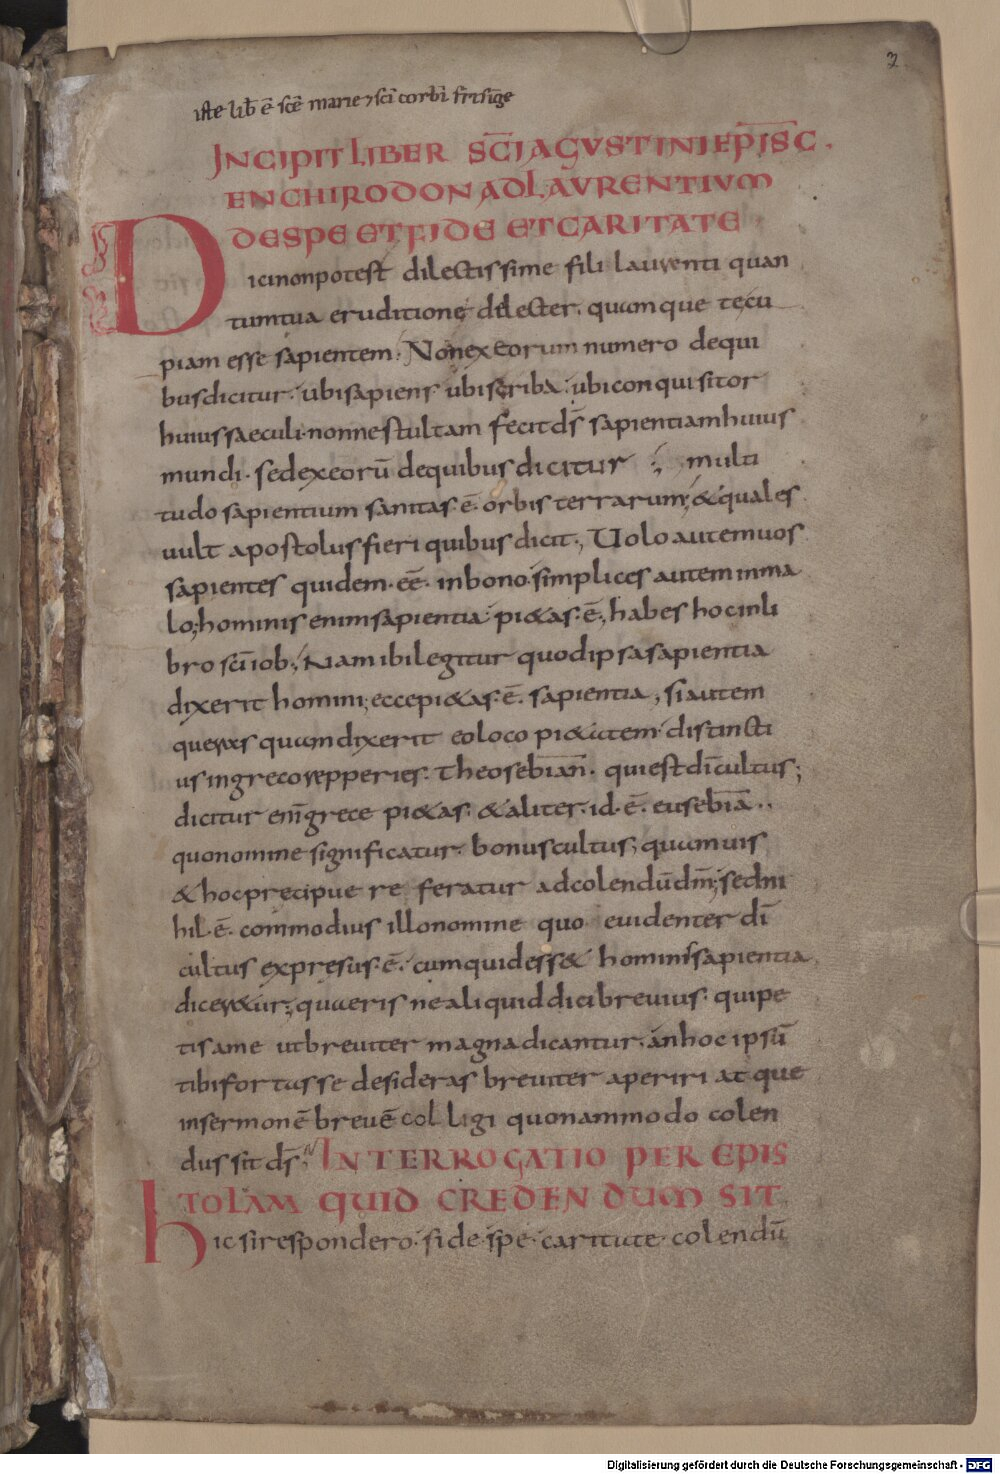 2
iste lib̄ ē scē marie ⁊ sc̄i corbī frisīge
INCIPIT LIBER SC̄I AGUSTINI EP̄ISC̄.
ENCHIRODON AD LAURENTIUM
DE SPE ET FIDE ET CARITATE
Dici non potest dilectissime fili laurenti quan
tum tua eruditione delecter. quam que te cu
piam esse sapientem. Non ex eorum numero de qui
bus dicitur. ubi sapiens ubi scriba. ubi conquisitor
huius saeculi. nonne stultam fecit ds̄ sapientiam huius
mundi. sed ex eorū de quibus dicitur; multi
tudo sapientium sanitas ē. orbis terrarum; & quales
vult apostolus fieri quibus dicit., Uolo autem uos
sapientes quidem. eē. in bono. simplices autem in ma
lo; hominis enim sapientia pi&as. ē., habes hoc in li
bro sc̄i iob., Nam ibi legitur quod ipsa sapientia
dixerit homini; ecce pi&as. ē. sapientia, si autem
queras quam dixerit eo loco pi&atem distincti
us in greco repperies. Theosebīan̄. qui est dī cultus;
dicitur enī grece pi&as. & aliter. id. ē. eusebīa..
quo nomine significatur. bonus cultus; quamuis
& hoc precipue re feratur ad colendū dm̄; sed ni
hil. ē. commodius illo nomine quo euidenter dī
cultus expresus. ē. cum quid ess& hominis sapientia
dicer&ur; quaeris ne aliquid dici breuius. qui pe
tis a me ut breuiter magna dicantur. an hoc ipsū
tibi fortasse desideras breuiter aperiri atque
in sermonē breuē colligi quonammodo colen
dus sit ds̄; INTERROGATIO PER EPIS
TOLAM QUID CREDENDUM SIT
hic si respondero. fide. spe. caritate. colendū
Digitalisierung gefördert durch die Deutsche Forschungsgemeinschaft - DFG